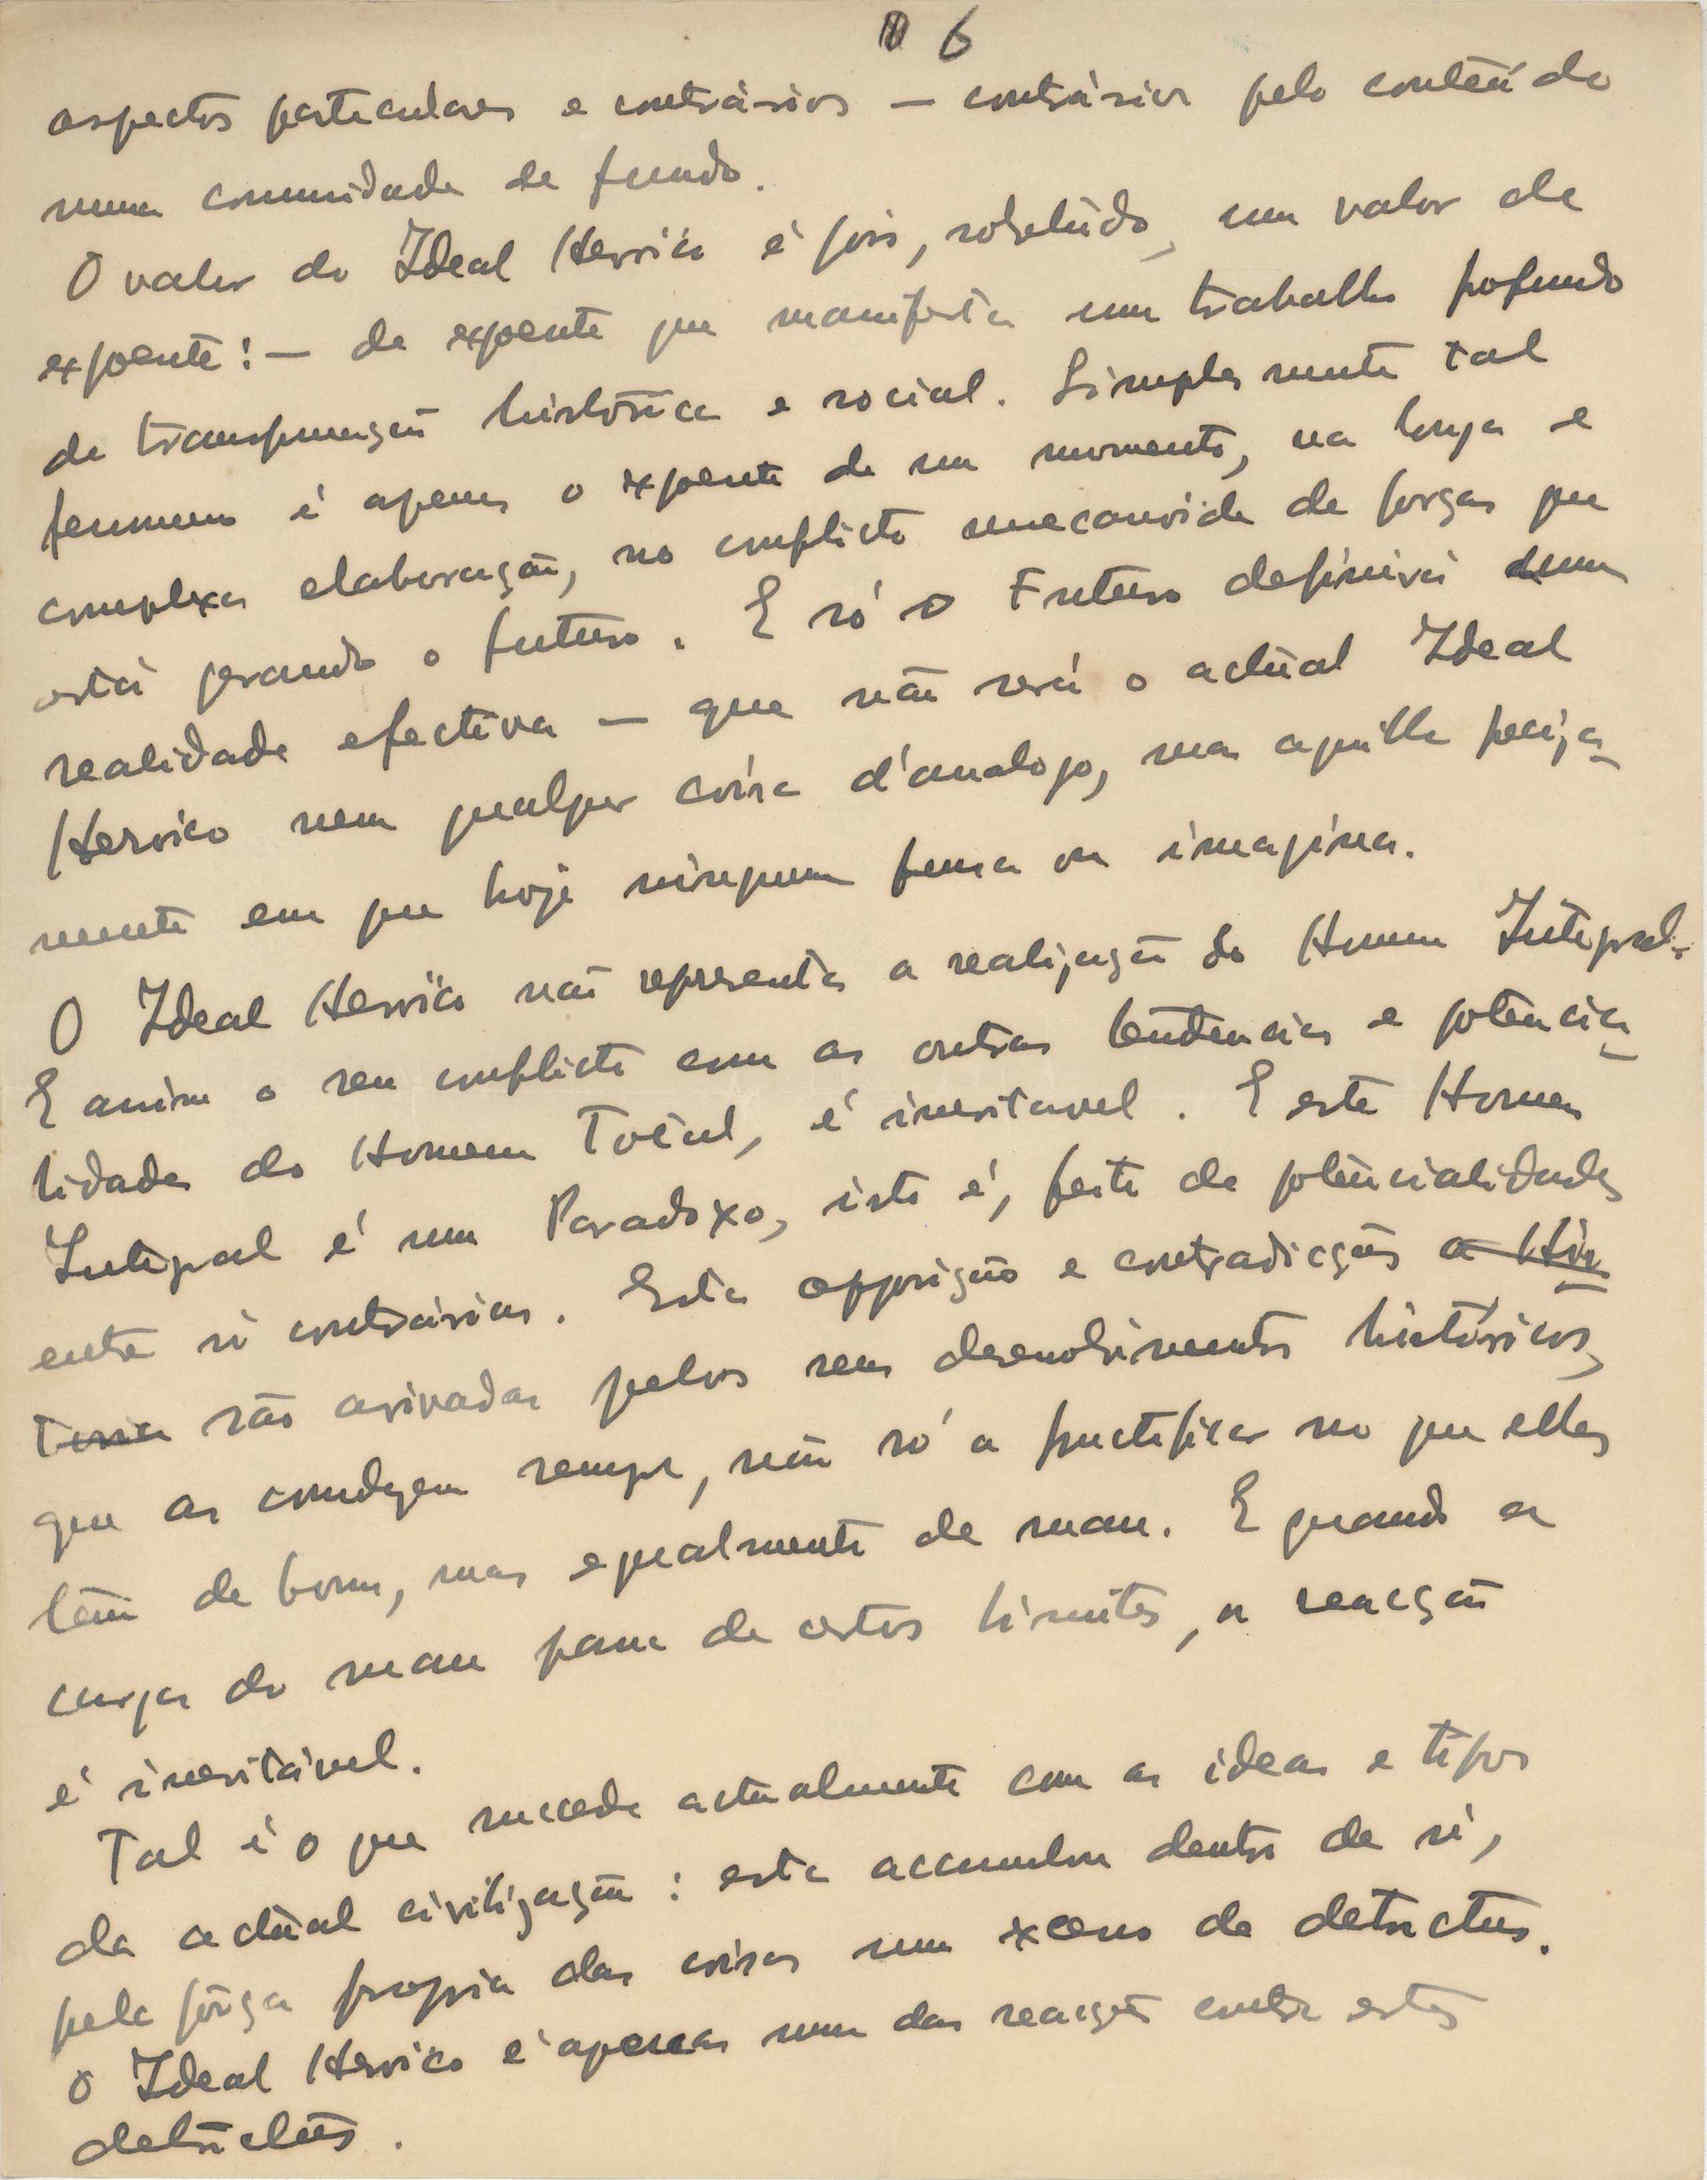 6
aspectos particulares e contrários — contrários pelo conteúdo
numa comunidade de fundo.
O valor do Ideal Heroico é pois, sobretudo, um valor de
expoente: — de expoente que manifesta um trabalho profundo
de transformação histórica e social. Simplesmente tal
fenomeno é apenas o expoente de um momento, na longa e
complexa elaboração, no conflicto de forças que
está gerando o futuro. E só o Futuro definirá uma
realidade efectiva — que não será o actual Ideal
Heroico nem qualquer coisa d'analogo, mas aquilla preciza-
mente em que hoje ninguem pensa ou imagina.
O Ideal Heroico não representa a realização do Homem Integral.
E assim o seu conflicto com as outras tendencias e potencia-
lidades do Homem Total, é inevitavel. E este Homem
Integral é um Paradoxo, isto é, feito de potencialidades
entre si contrárias. Esta opposição e contradicções a His-
toria são avivadas pelos seus desenvolvimentos históricos,
que as conduzem sempre, não só a fructificar no que elles
têm de bom, mas egualmente de mau. E quando a
carga do mau passa de certos limites, a reacção
é inevitável.
Tal é o que succede actualmente com as ideas e tipos
da actual civilização: esta accumulou dentro de si,
pela força propria das coisas um excesso de detrictus.
O Ideal Heroico é apenas uma das reacções contra estes
detrictus.